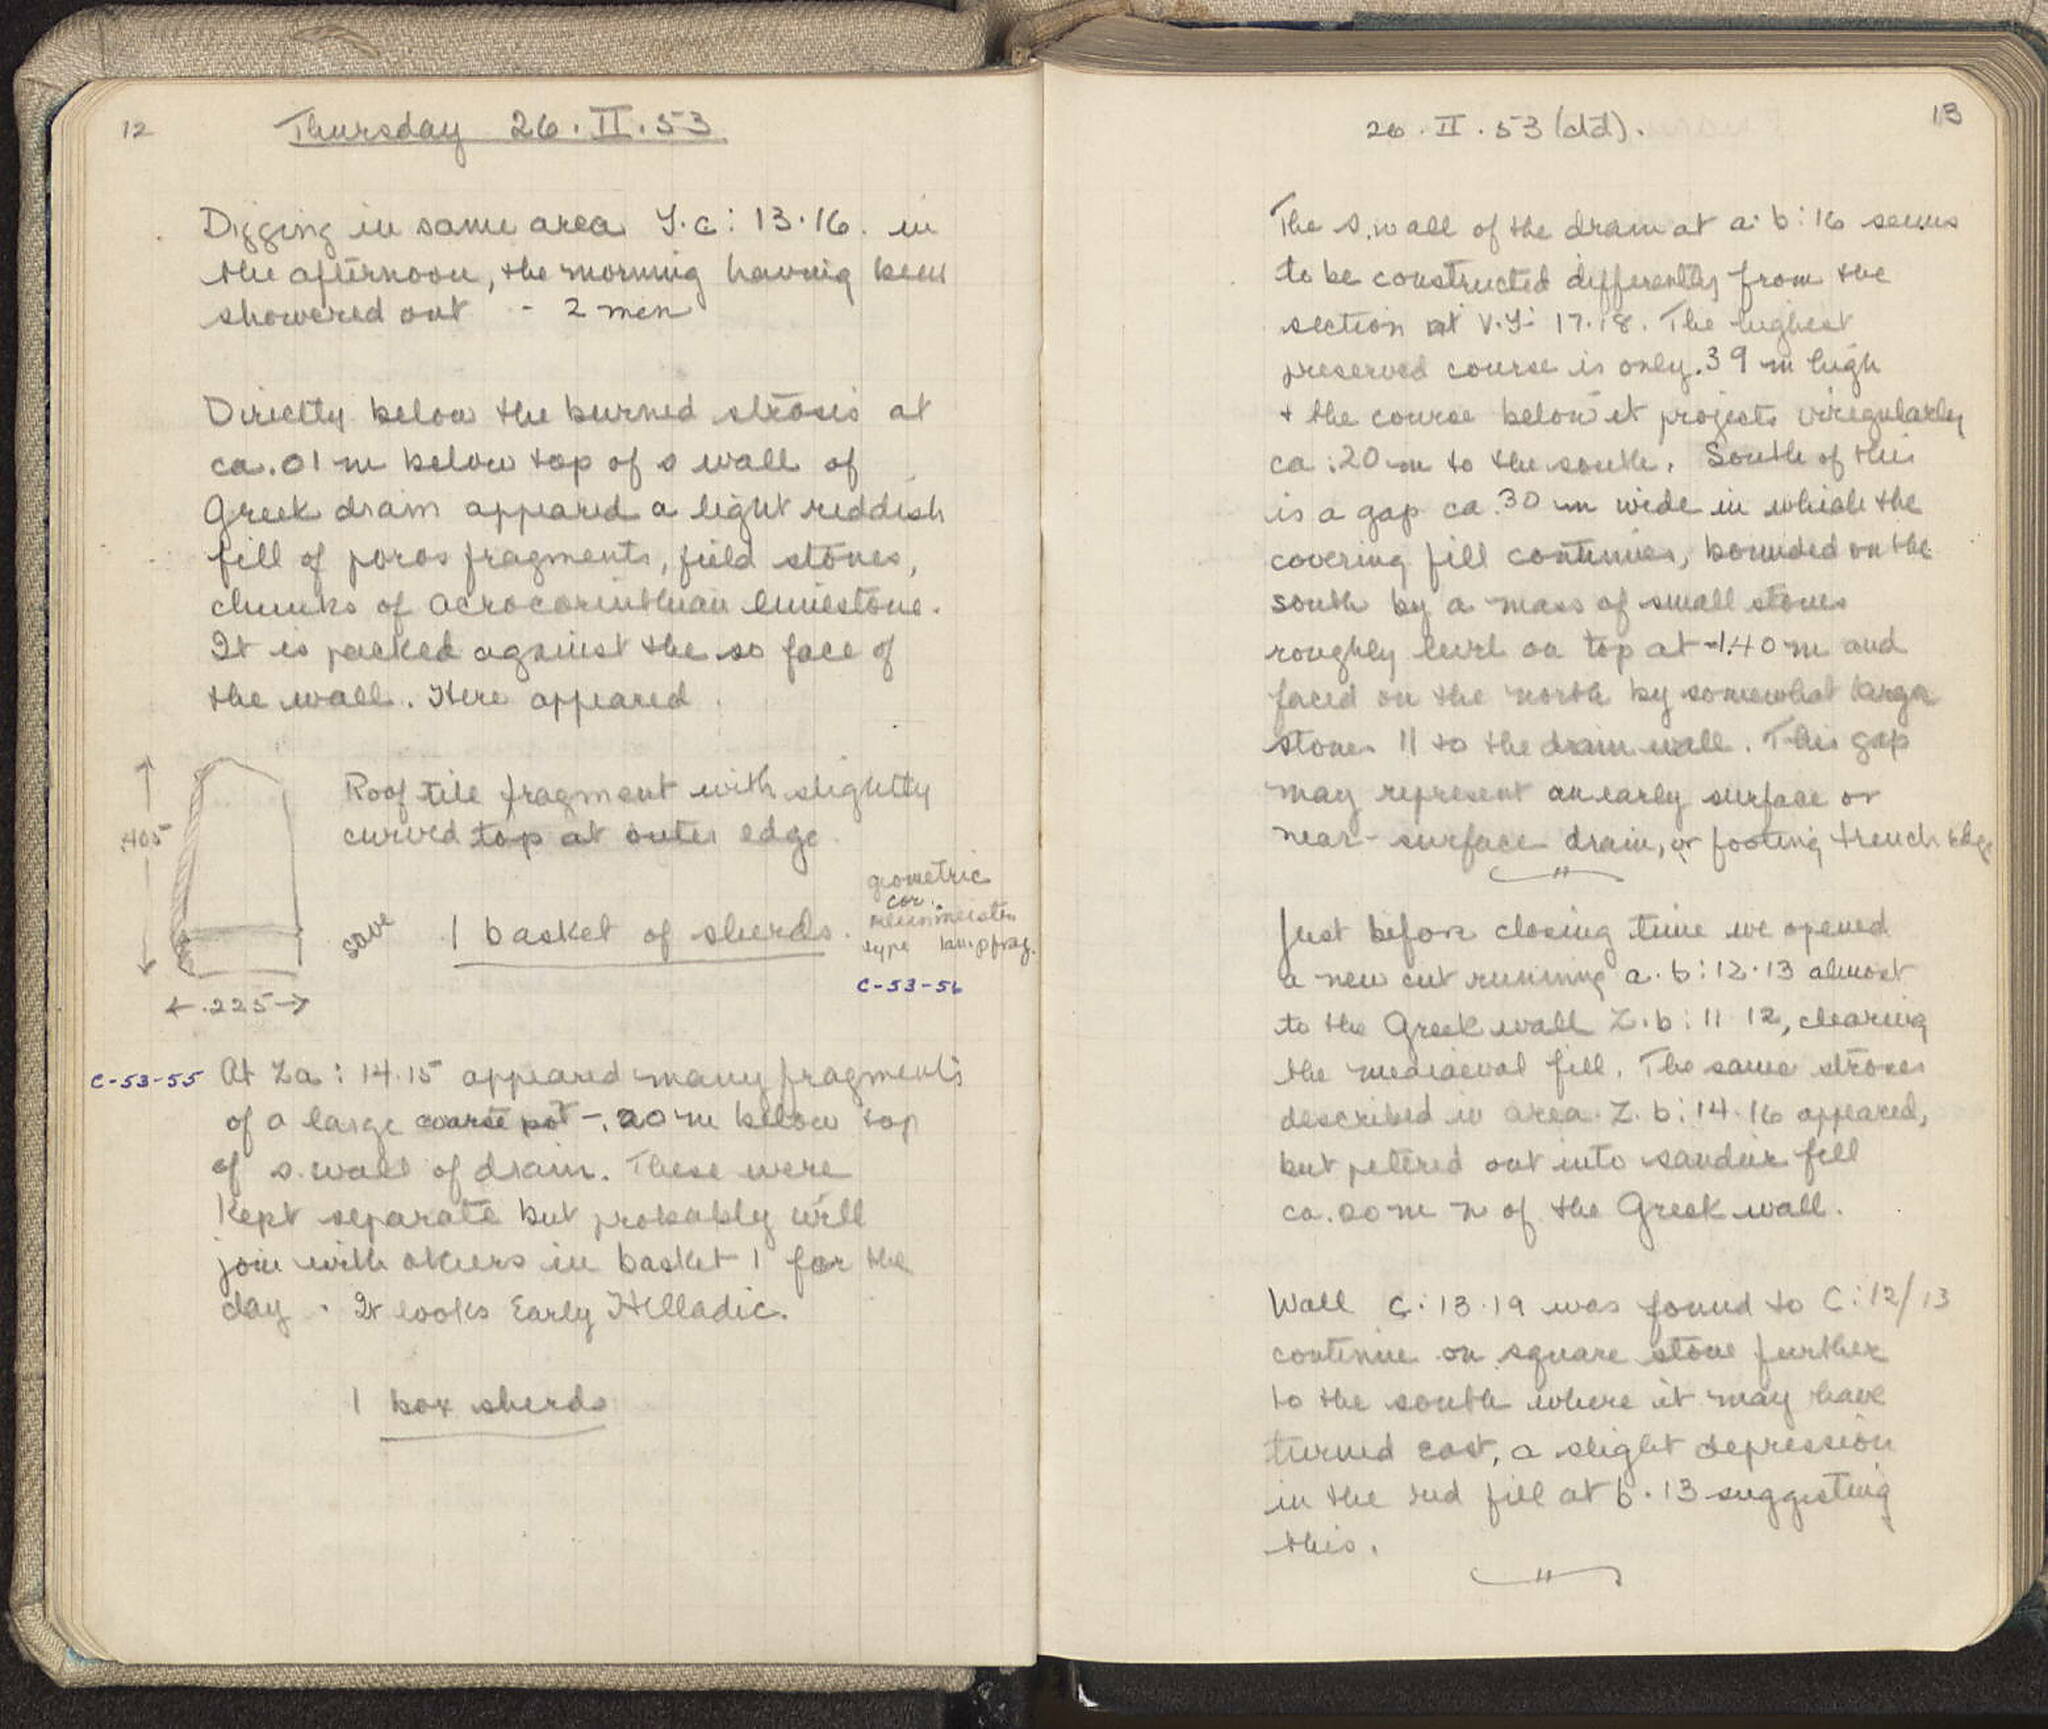 12
Thursday 26.II.53
Digging in same area Y.c: 13.16. in
the afternoon, the morning having been
showered out - 2 men
Directly below the burned strosis at
ca .01 m below top of s wall of
Greek drain appeared a light reddish
fill of poros fragments, field stones,
chunks of acrocorinthian limestone.
It is packed against the so face of
the wall. Here appeared
.405
.225
Roof tile fragment with slightly
curved top at outer edge.
save
1 basket of sherds.
geometric
cor.
type lamp frag.
C-53-56
C-53-55
At Za: 14.15 appeared many fragments
of a large coarse pot -.20 m below top
of s. wall of drain. These were
kept separate but probably will
join with others in basket 1 for the
day. It looks Early Helladic.
1 box sherds
13
26.II.53 (ctd).
The s. wall of the drain at a.b:16 seems
to be constructed differently from the
section at V.Y: 17.18. The highest
preserved course is only .39 m high
+ the course below it projects irregularly
ca .20 m to the south. South of this
is a gap ca .30 m wide in which the
covering fill continues, bounded on the
south by a mass of small stones
roughly level on top at -1.40 m and
faced on the north by somewhat larger
stones || to the drain wall. This gap
may represent an early surface or
near-surface drain, or footing trench edge
"
Just before closing time we opened
a new cut running a.b:12.13 almost
to the Greek wall Z.b:11 12, clearing
the mediaeval fill. The same stroses
described in area Z.b:14.16 appeared,
but petered out into sandier fill
ca. m n of the Greek wall.
Wall C:13.19 was found to C:12/13
continue on square stone further
to the south where it may have
turned east, a slight depression
in the red fill at b.13 suggesting
this.
"